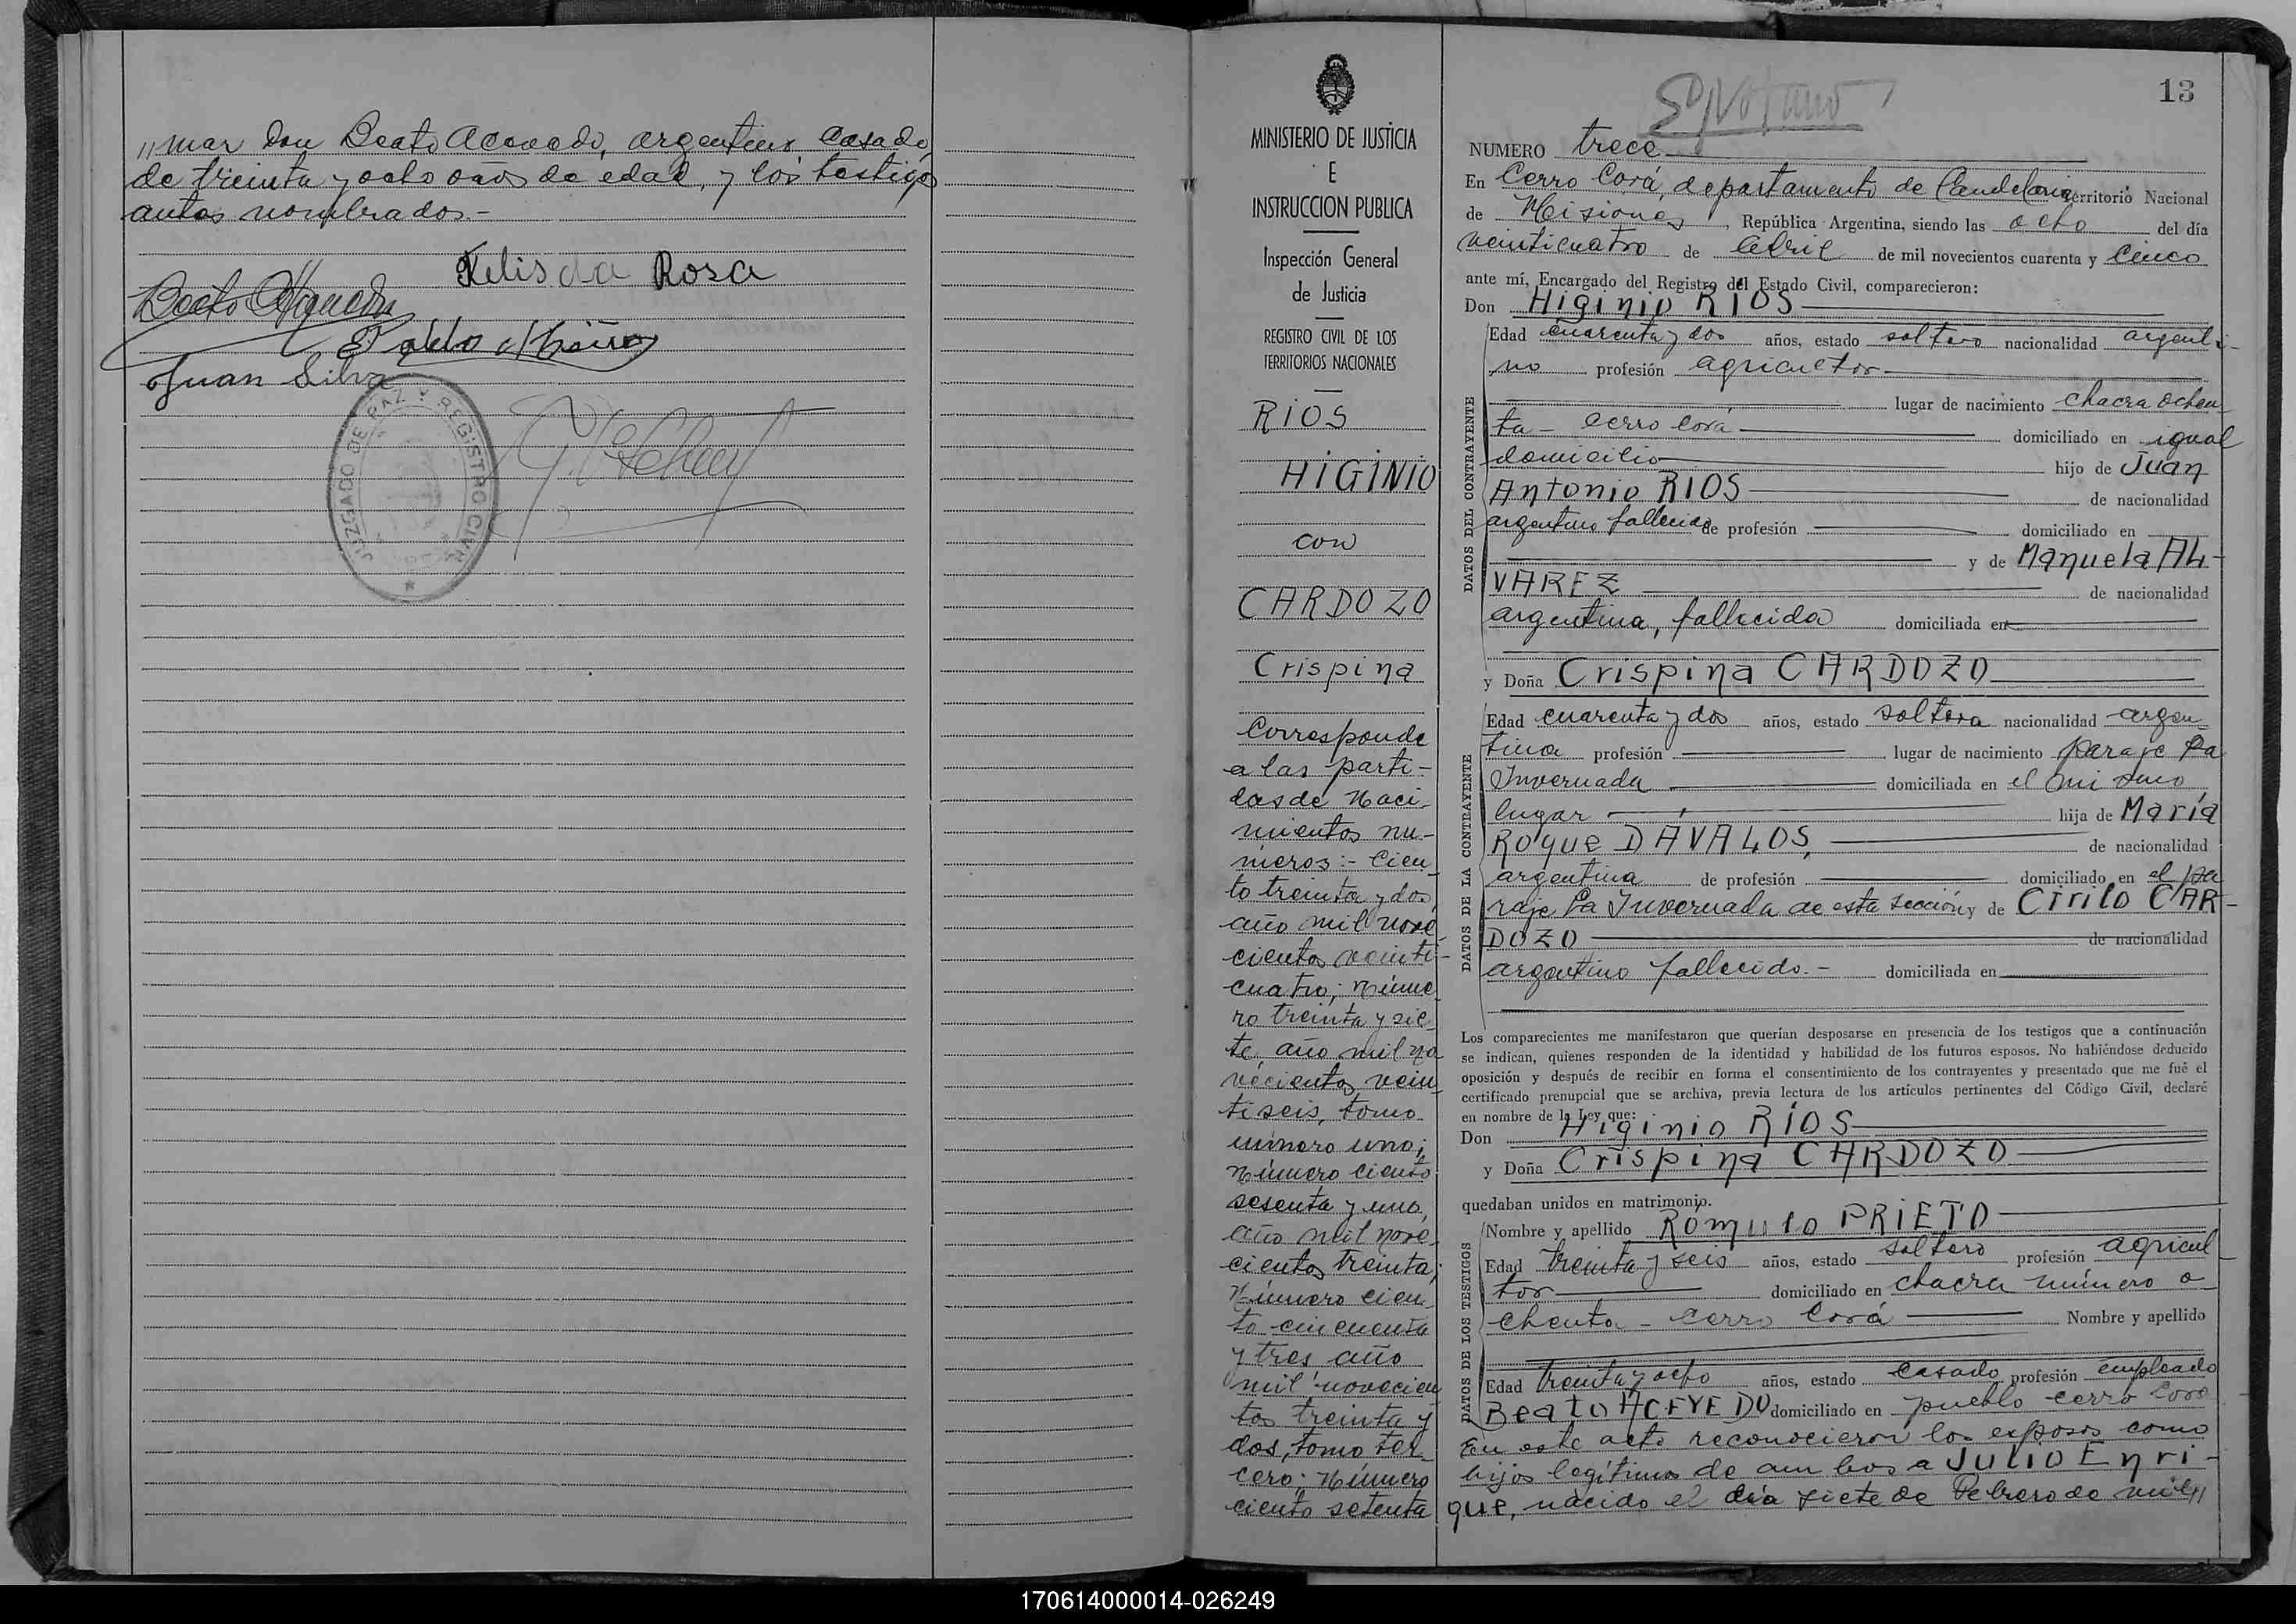 "mar don Beato Acevedo, argentino casado,
de treinta y ocho años de edad, y los testigos
antes nombrados.-
Felis da Rosa
Beato
Pablo
Juan Silva
JUZGADO DE PAZ Y REGISTRO CIVIL
MINISTERIO DE JUSTICIA
E
INSTRUCCION PUBLICA
Inspección General
de Justicia
REGISTRO CIVIL DE LOS
TERRITORIOS NACIONALES
RIOS
HIGINIO
con
CARDOZO
Crispina
Corresponde
a las parti-
das de Naci-
mientos nu-
meros:- Cien
to treinta y dos,
año mil nove
cientos veinti-
cuatro; núme
ro treinta y sie
te, año mil no
vecientos vein
tiseis, tomo
número uno;
Número ciento
sesenta y uno,
año mil nove-
cientos treinta;
Número cien-
to cincuenta
y tres año
mil novecien
tos treinta y
dos, tomo ter-
cero; Número
ciento setenta
13
NUMERO trece
En Cerro Corá, departamento de Candelaria territorio Nacional
de Misiones, República Argentina, siendo las ocho del día
veinticuatro de Abril de mil novecientos cuarenta y Cinco
ante mí, Encargado del Registro del Estado Civil, comparecieron:
Don Higinio RIOS
DATOS DEL CONTRAYENTE
Edad cuarenta y dos años, estado soltero nacionalidad argenti-
no profesión agricultor
lugar de nacimiento chacra ochen-
ta - Cerro Corá domiciliado en igual
domicilio hijo de Juan
Antonio RIOS de nacionalidad
argentino fallecido de profesión domiciliado en
y de Manuela AL-
VAREZ de nacionalidad
argentina, fallecida domiciliada en
y Doña Crispina CARDOZO
DATOS DE LA CONTRAYENTE
Edad cuarenta y dos años, estado soltera nacionalidad argen-
tina profesión lugar de nacimiento paraje La
Invernada domiciliada en el mismo
lugar hija de María
Roque DAVALOS, de nacionalidad
argentina de profesión domiciliado en el pa
raje La Invernada de esta sección y de Cirilo CAR-
DOZO de nacionalidad
argentino fallecido.- domiciliada en
Los comparecientes me manifestaron que querían desposarse en presencia de los testigos que a continuación
se indican, quienes responden de la identidad y habilidad de los futuros esposos. No habiéndose deducido
oposición y después de recibir en forma el consentimiento de los contrayentes y presentado que me fué el
certificado prenupcial que se archiva, previa lectura de los artículos pertinentes del Código Civil, declaré
en nombre de la Ley que:
Don Higinio RIOS
y Doña Crispina CARDOZO
quedaban unidos en matrimonio.
DATOS DE LOS TESTIGOS
Nombre y apellido Romulo PRIETO
Edad treinta y seis años, estado soltero profesión agricul-
tor domiciliado en chacra número o-
chenta - Cerro Corá Nombre y apellido
Edad treinta y ocho años, estado casado profesión empleado
Beato ACEVEDO domiciliado en pueblo Cerro Corá
En este acto reconocieron los esposos como
hijos legítimos de ambos a Julio Enri-
que, nacido el día siete de Febrero de mil"
170614000014-026249